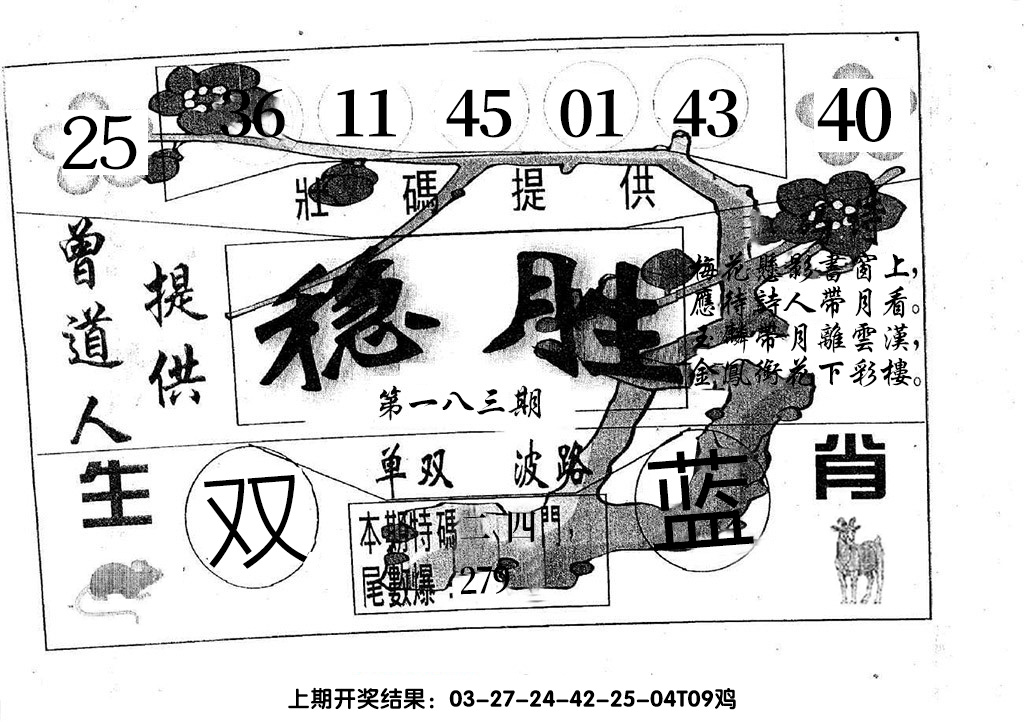 25 36 11 45 01 43 40
壯碼提供
曾道人
提供
稳胜
第一八三期
梅花懸影書窗上，
應待詩人帶月看。
玉麟帶月離雲漢，
金鳳銜花下彩樓。
单双 波路
生
双
蓝
肖
本期特碼二、四門，
尾數爆：279
上期开奖结果：03-27-24-42-25-04T09鸡